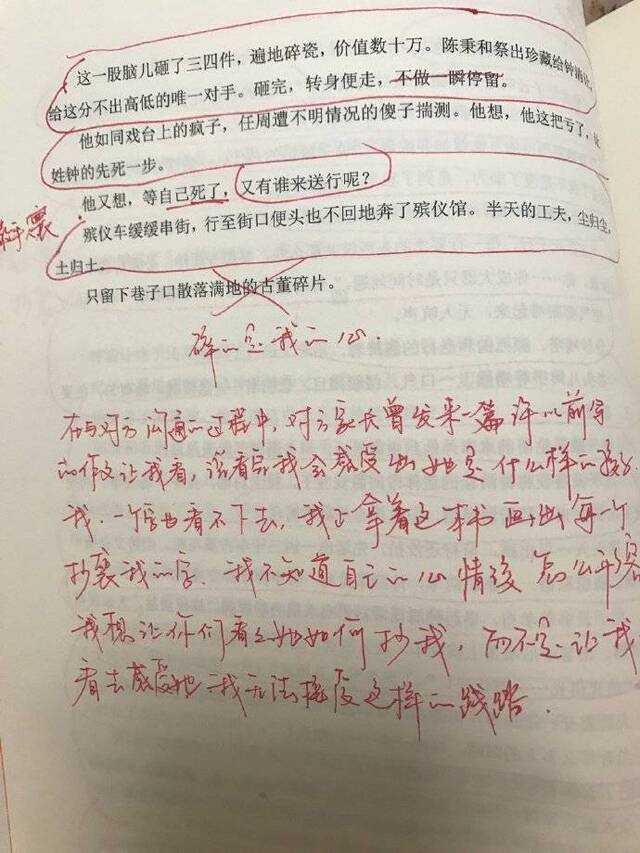 这一股脑儿砸了三四件，遍地碎瓷，价值数十万。陈秉和祭出珍藏给钟
给这分不出高低的唯一对手。砸完，转身便走，不做一瞬停留。
他如同戏台上的疯子，任周遭不明情况的傻子揣测。他想，他这把亏了，
姓钟的先死一步。
他又想，等自己死了，又有谁来送行呢？
殡仪车缓缓串街，行至街口便头也不回地奔了殡仪馆。半天的工夫，尘归尘，
土归土。
只留下巷子口散落满地的古董碎片。
碎的是我的心.
在与对方沟通的过程中，对方家长曾发来一篇许以前写
的作文让我看，说看完我会感受出她是什么样的孩子
我，一个字也看不下去，我正拿着这本书画出每一个
抄袭我的字. 我不知道自己的心情该怎么形容
我想让你们看看她如何抄我，而不是让我
看去感受她 我无法接受这样的践踏.